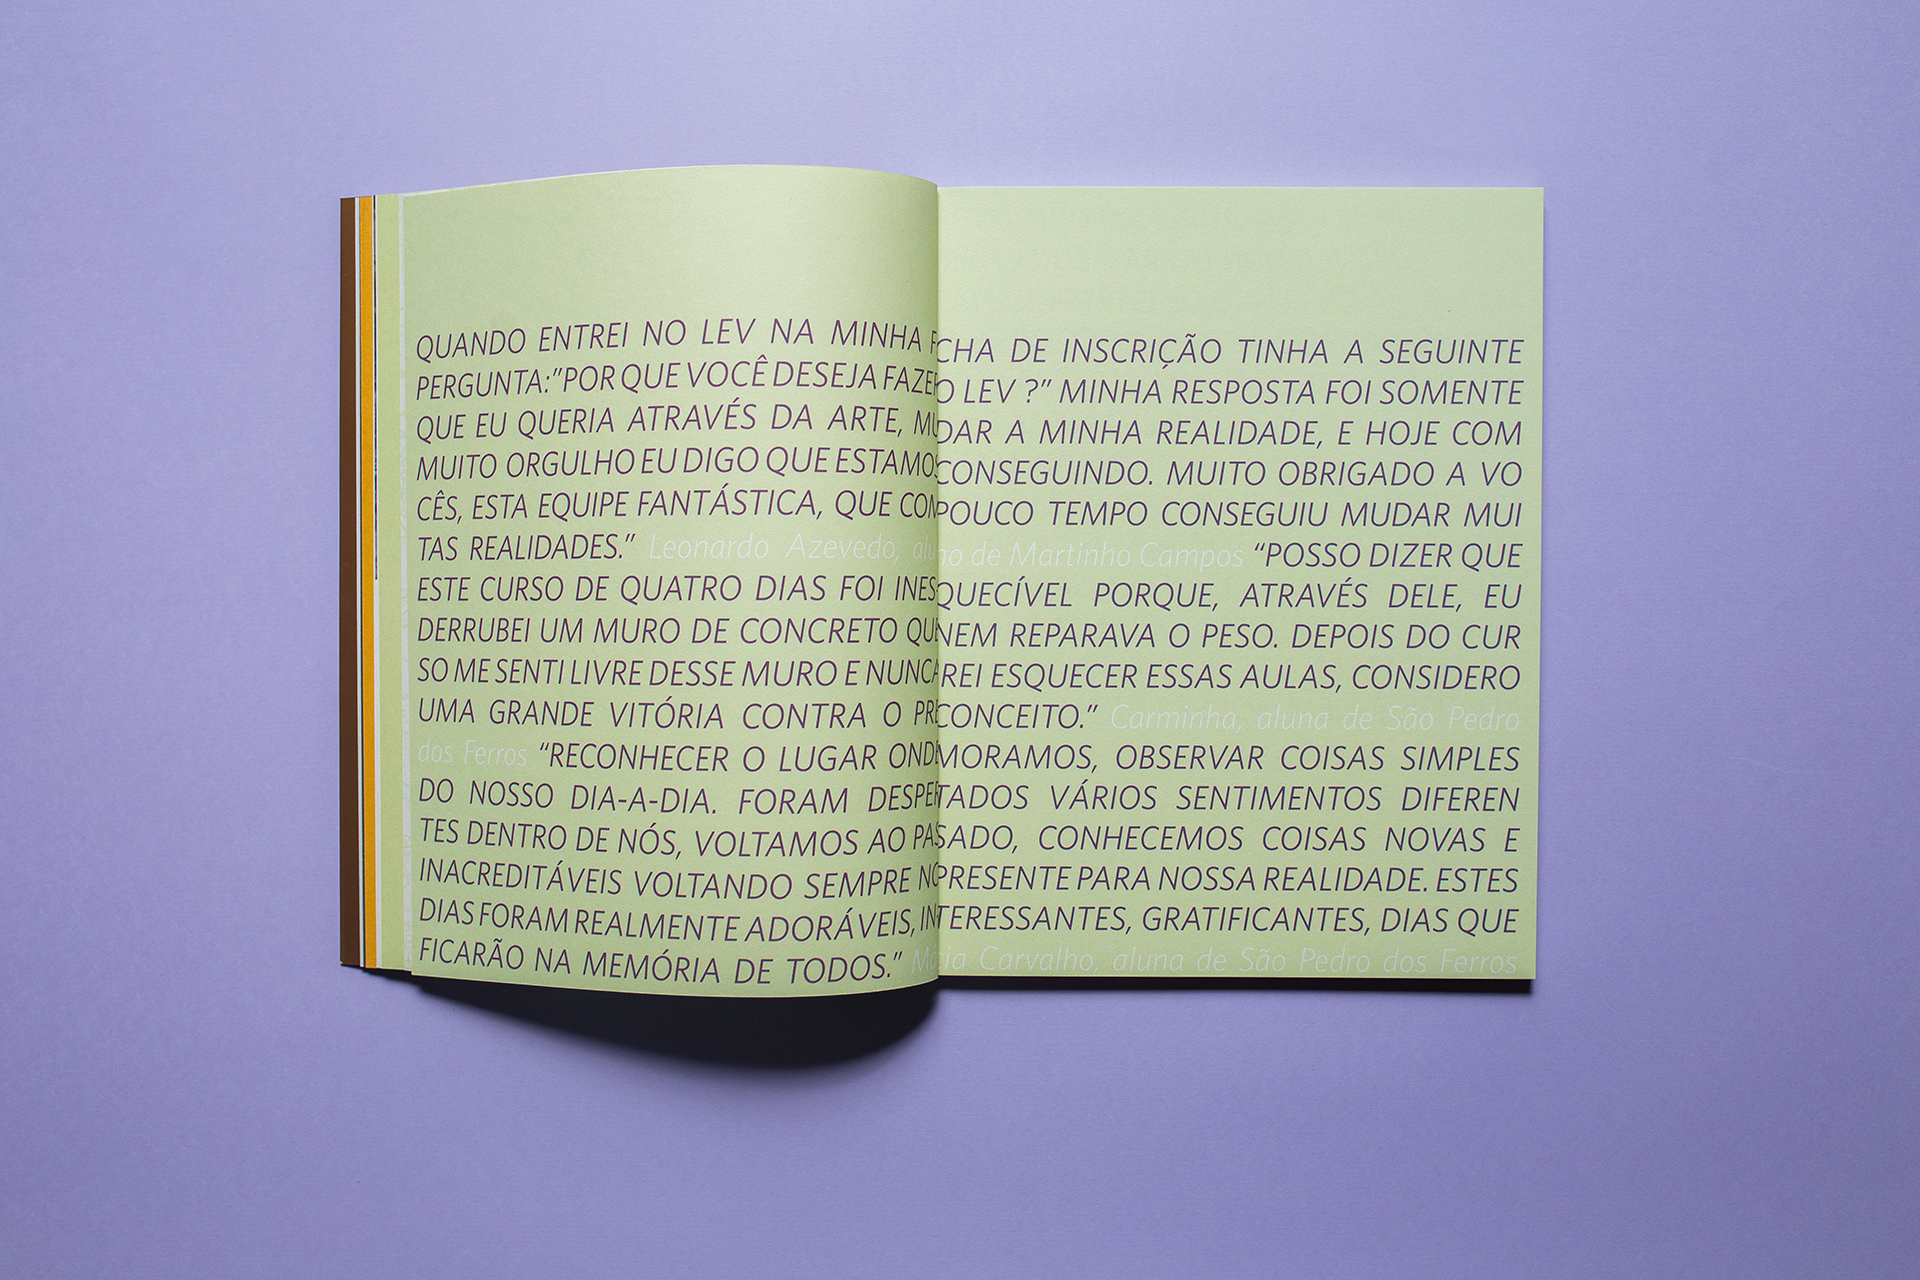 QUANDO ENTREI NO LEV NA MINHA FICHA DE INSCRIÇÃO TINHA A SEGUINTE
PERGUNTA:"POR QUE VOCÊ DESEJA FAZER O LEV ?" MINHA RESPOSTA FOI SOMENTE
QUE EU QUERIA ATRAVÉS DA ARTE, MUDAR A MINHA REALIDADE, E HOJE COM
MUITO ORGULHO EU DIGO QUE ESTAMOS CONSEGUINDO. MUITO OBRIGADO A VO
CÊS, ESTA EQUIPE FANTÁSTICA, QUE COM POUCO TEMPO CONSEGUIU MUDAR MUI
TAS REALIDADES." Leonardo Azevedo, aluno de Martinho Campos "POSSO DIZER QUE
ESTE CURSO DE QUATRO DIAS FOI INESQUECÍVEL PORQUE, ATRAVÉS DELE, EU
DERRUBEI UM MURO DE CONCRETO QUE NEM REPARAVA O PESO. DEPOIS DO CUR
SO ME SENTI LIVRE DESSE MURO E NUNCA IREI ESQUECER ESSAS AULAS, CONSIDERO
UMA GRANDE VITÓRIA CONTRA O PRECONCEITO." Carminha, aluna de São Pedro
dos Ferros "RECONHECER O LUGAR ONDE MORAMOS, OBSERVAR COISAS SIMPLES
DO NOSSO DIA-A-DIA. FORAM DESPERTADOS VÁRIOS SENTIMENTOS DIFEREN
TES DENTRO DE NÓS, VOLTAMOS AO PASSADO, CONHECEMOS COISAS NOVAS E
INACREDITÁVEIS VOLTANDO SEMPRE NO PRESENTE PARA NOSSA REALIDADE. ESTES
DIAS FORAM REALMENTE ADORÁVEIS, INTERESSANTES, GRATIFICANTES, DIAS QUE
FICARÃO NA MEMÓRIA DE TODOS." Carvalho, aluna de São Pedro dos Ferros